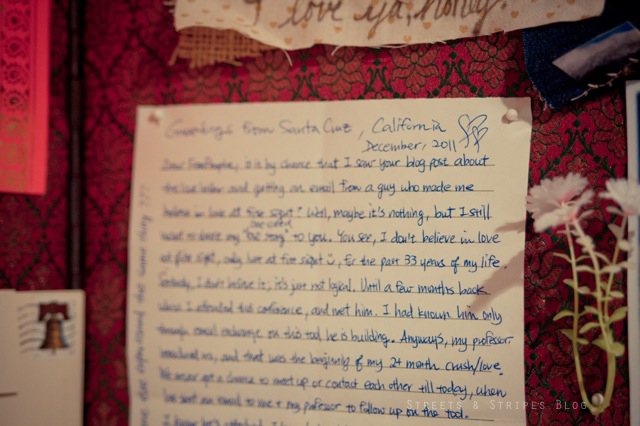 I love ya, honey.
Greetings from Santa Cruz, California
December, 2011
Dear , it is by chance that I saw your blog post about
the love letter and getting an email from a guy who made me
believe in love at first sight? Well, maybe it's nothing, but I still
want to share my "love story" to you. You see, I don't believe in love
at first sight, only love at first sight, for the past 33 years of my life.
I don't believe it; it's just not logical. Until a few months back
when I attended this conference, and met him. I had known him only
through email exchange on this tool he is building. Anyways, my professor
introduced us, and that was the beginning of my 2+ month crush/love.
We never got a chance to meet up or contact each other till today, when
he sent an email to me + my professor to follow up on the tool.
STREETS & STRIPES BLOG